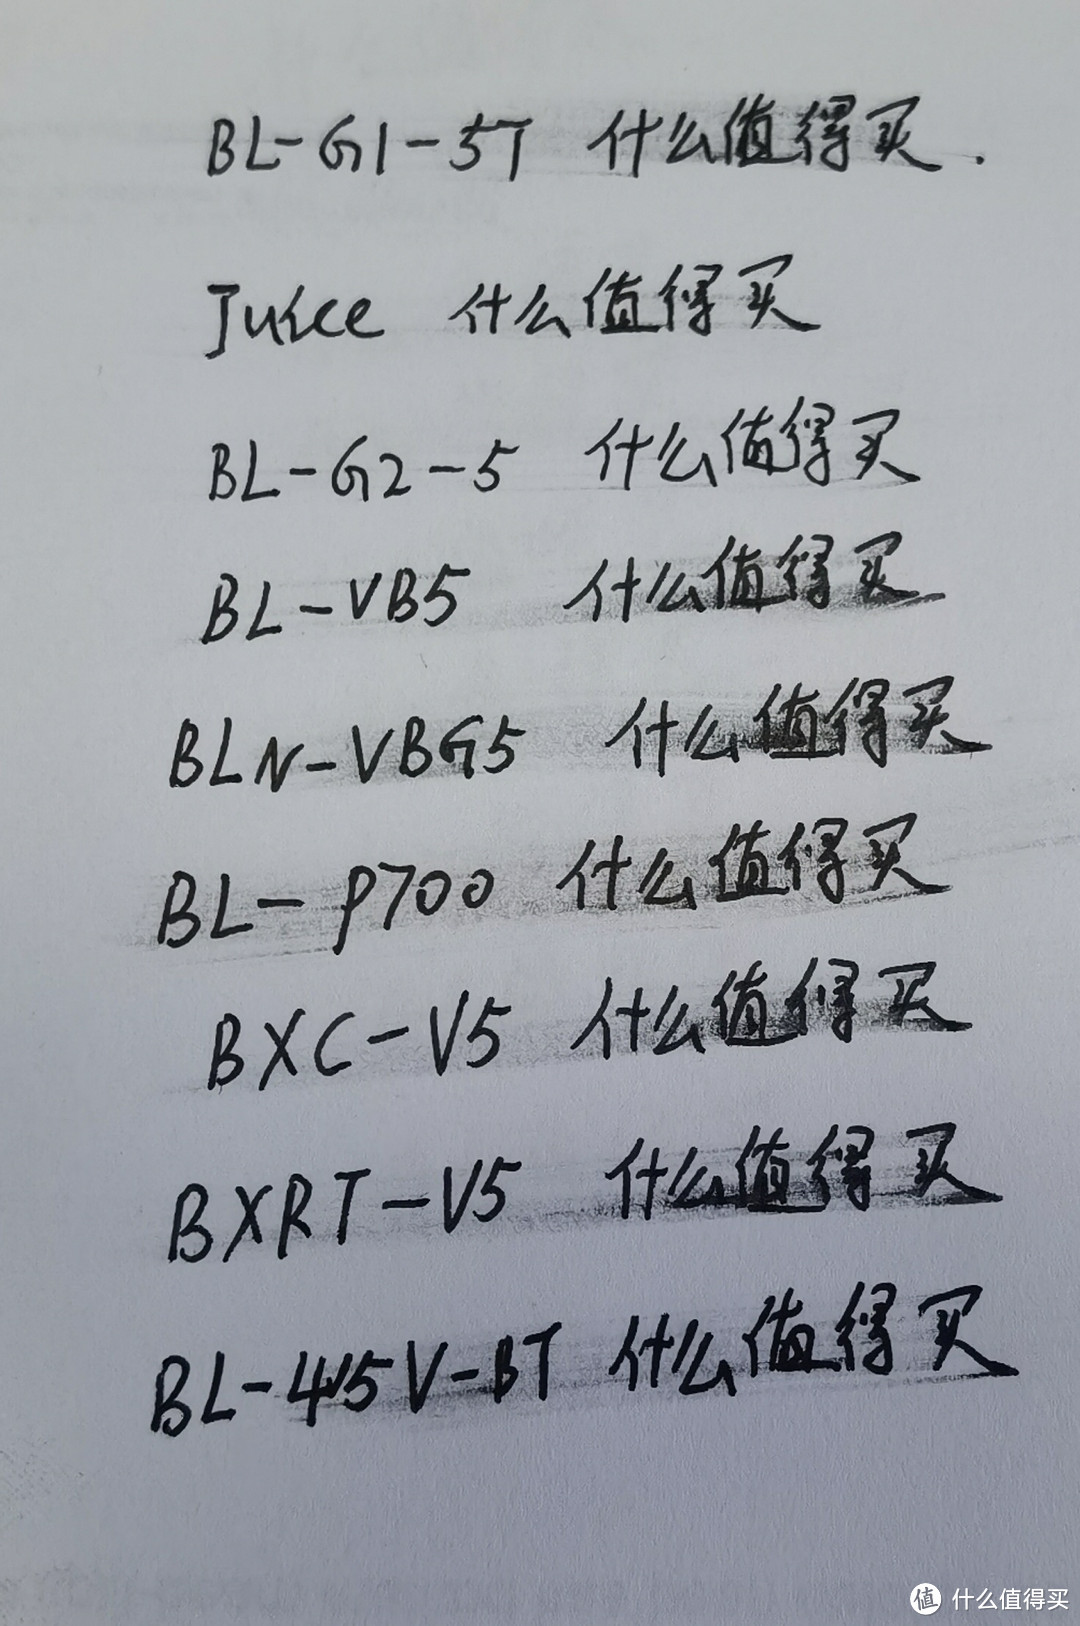 BL-G1-5T 什么值得买.
Juice 什么值得买
BL-G2-5 什么值得买
BL-VB5 什么值得买
BLN-VBG5 什么值得买
BL-P700 什么值得买
BXC-V5 什么值得买
BXRT-V5 什么值得买
BL-415V-BT 什么值得买
值 什么值得买